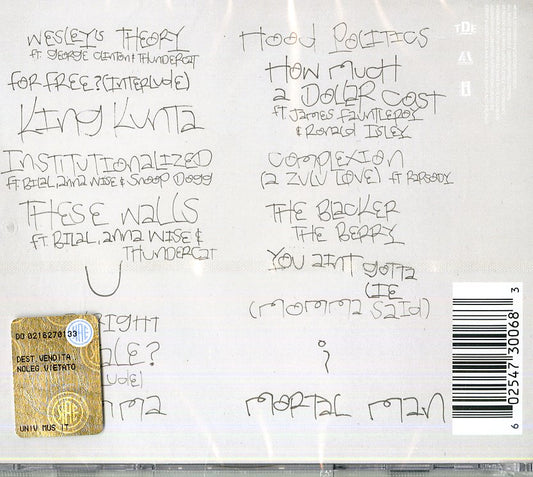 WESLEY'S THEORY
ft. GEORGE CLINTON & THUNDERCAT
FOR FREE? (INTERLUDE)
KING KUNTA
INSTITUTIONALIZED
ft. BILAL, ANNA WISE & SNOOP DOGG
THESE WALLS
ft. BILAL, ANNA WISE &
THUNDERCAT
U
RIGHT
ALE?
UDE)
MMA
HOOD POLITICS
HOW MUCH
A DOLLAR COST
ft JAMES FAUNTLEROY
& RONALD ISLEY
COMPLEXION
(A ZULU LOVE) ft RAPSODY
THE BLACKER
THE BERRY
YOU AINT GOTTA
LIE
(MOMMA SAID)
i
MORTAL MAN
TDE
DD 0216270133
SIAE
DEST.VENDITA
NOLEG.VIETATO
UNIV MUS IT
6 02547 30068 3